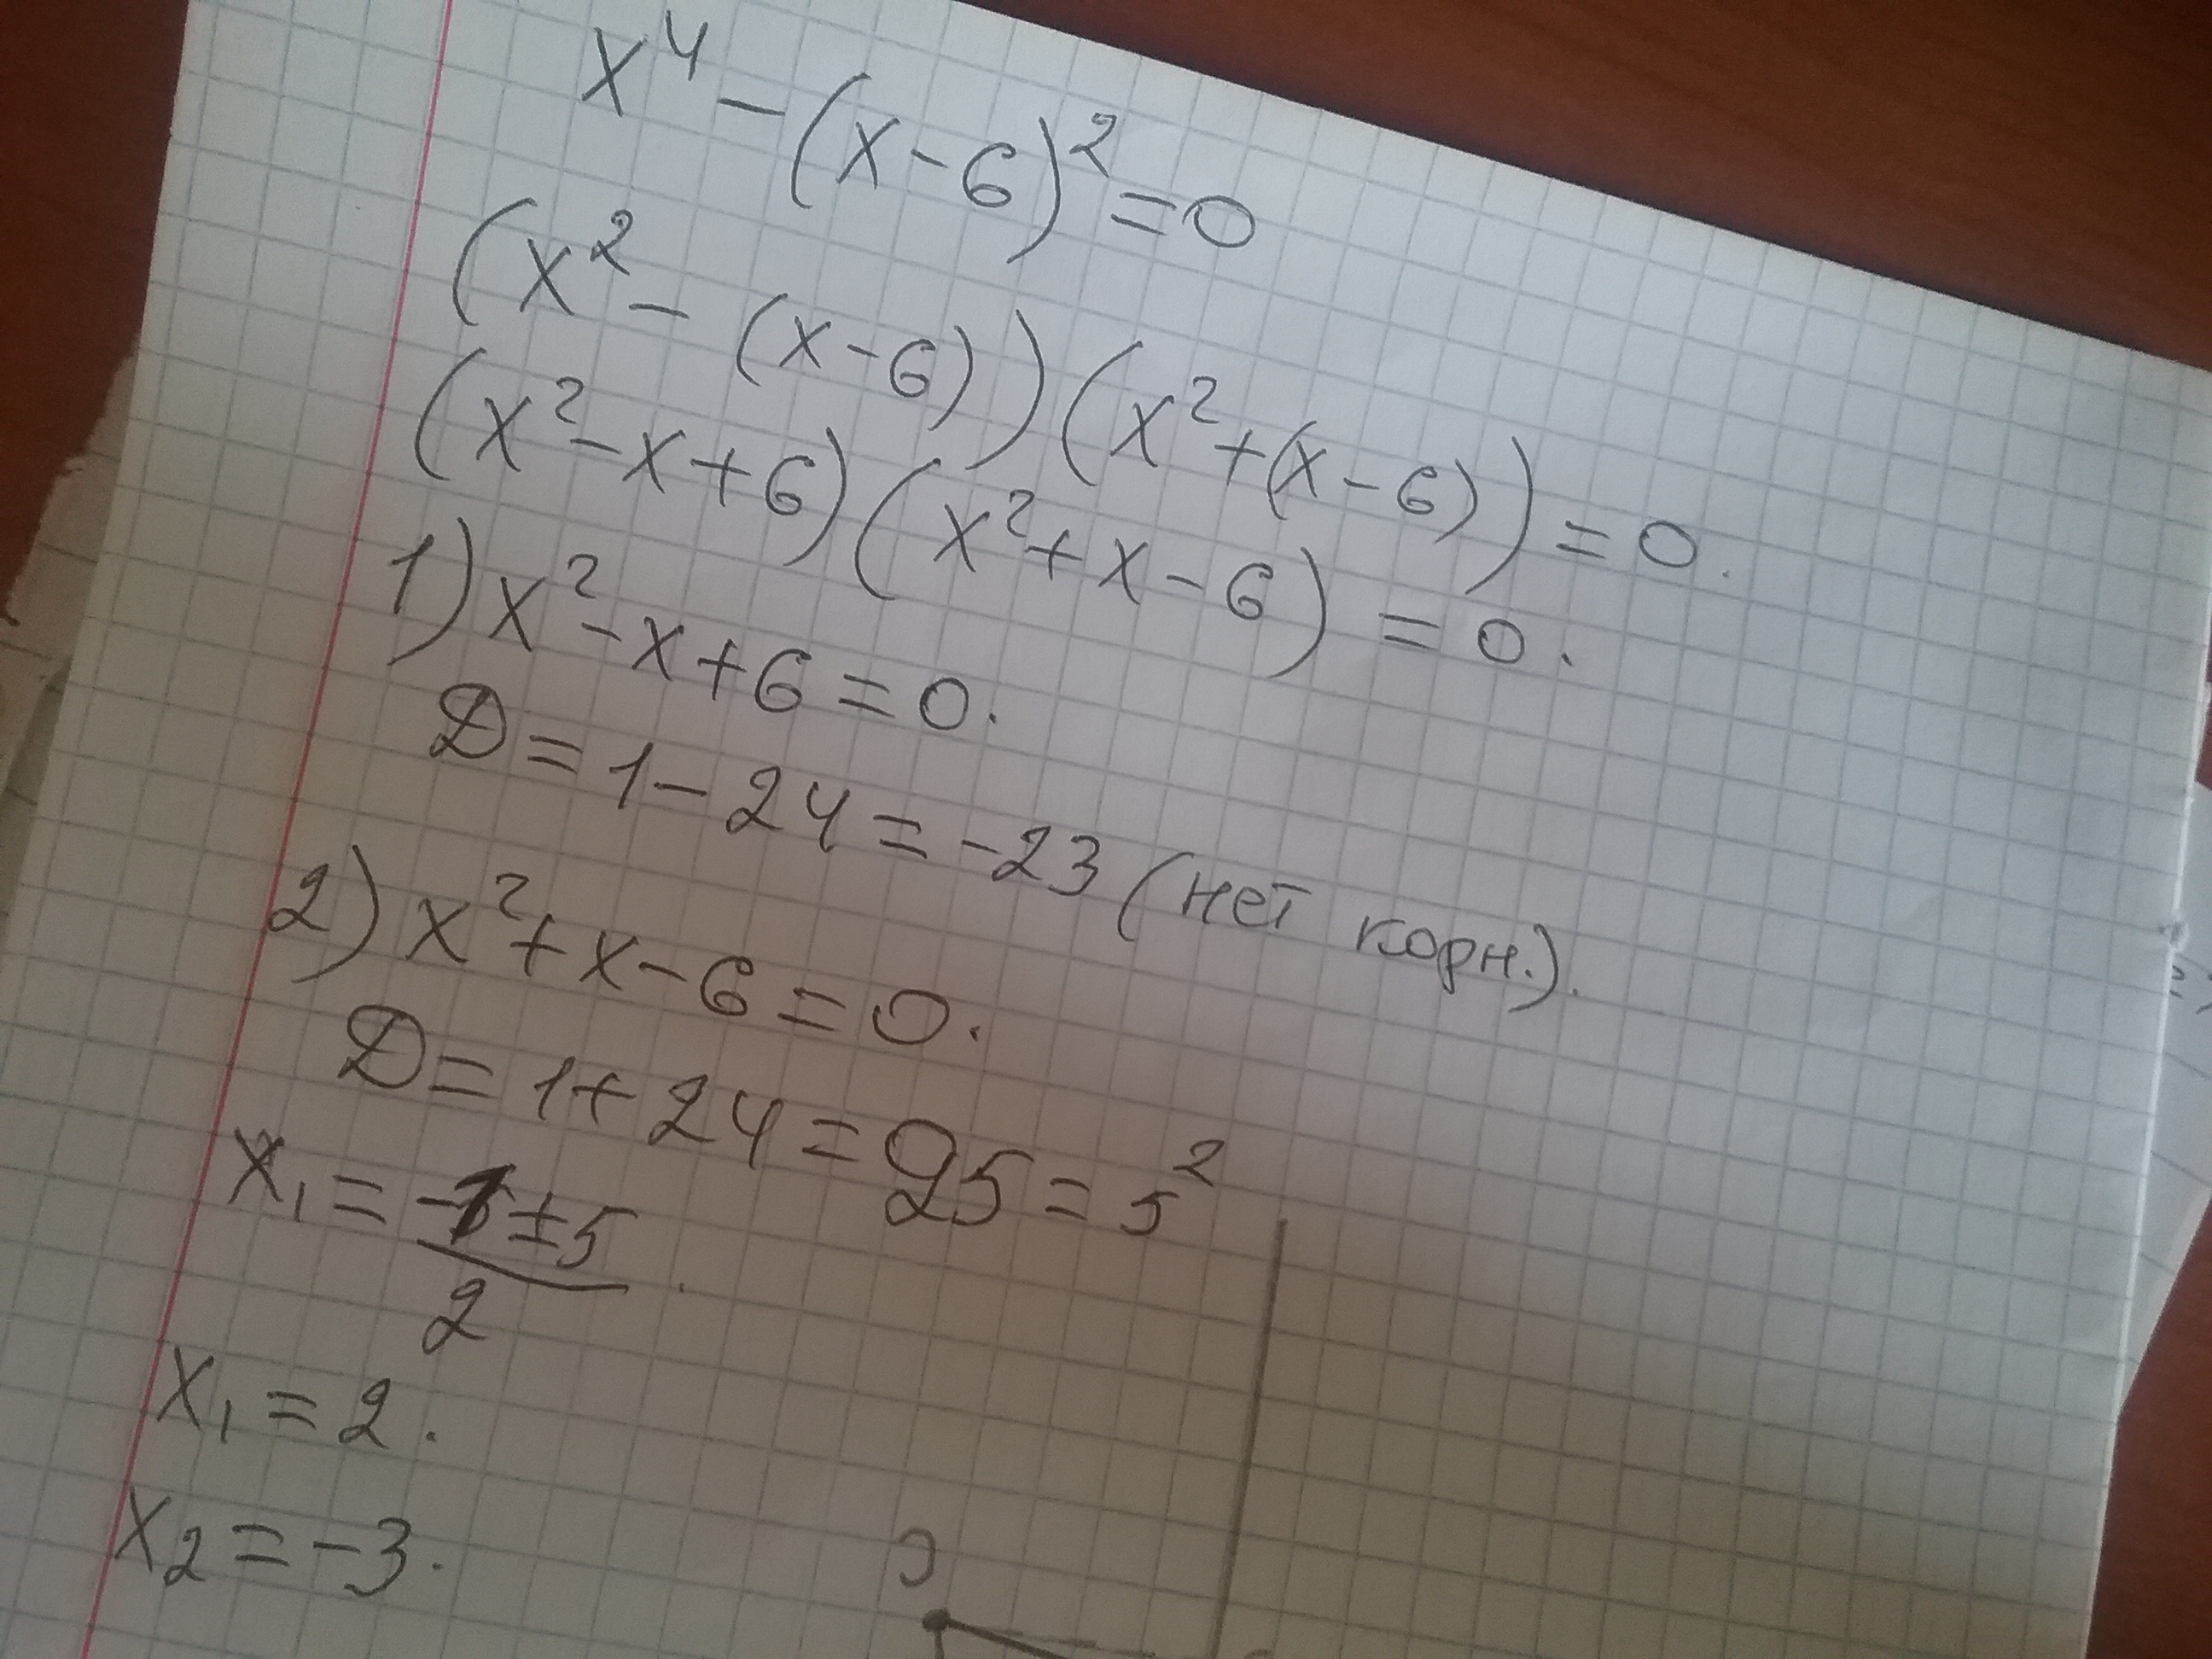 x⁴ − (x − 6)² = 0
(x² − (x − 6))(x² + (x − 6)) = 0.
(x² − x + 6)(x² + x − 6) = 0.
1) x² − x + 6 = 0.
D = 1 − 24 = −23 (нет корн.).
2) x² + x − 6 = 0.
D = 1 + 24 = 25 = 5²
x₁ = (−1 ± 5)/2.
x₁ = 2.
x₂ = −3.